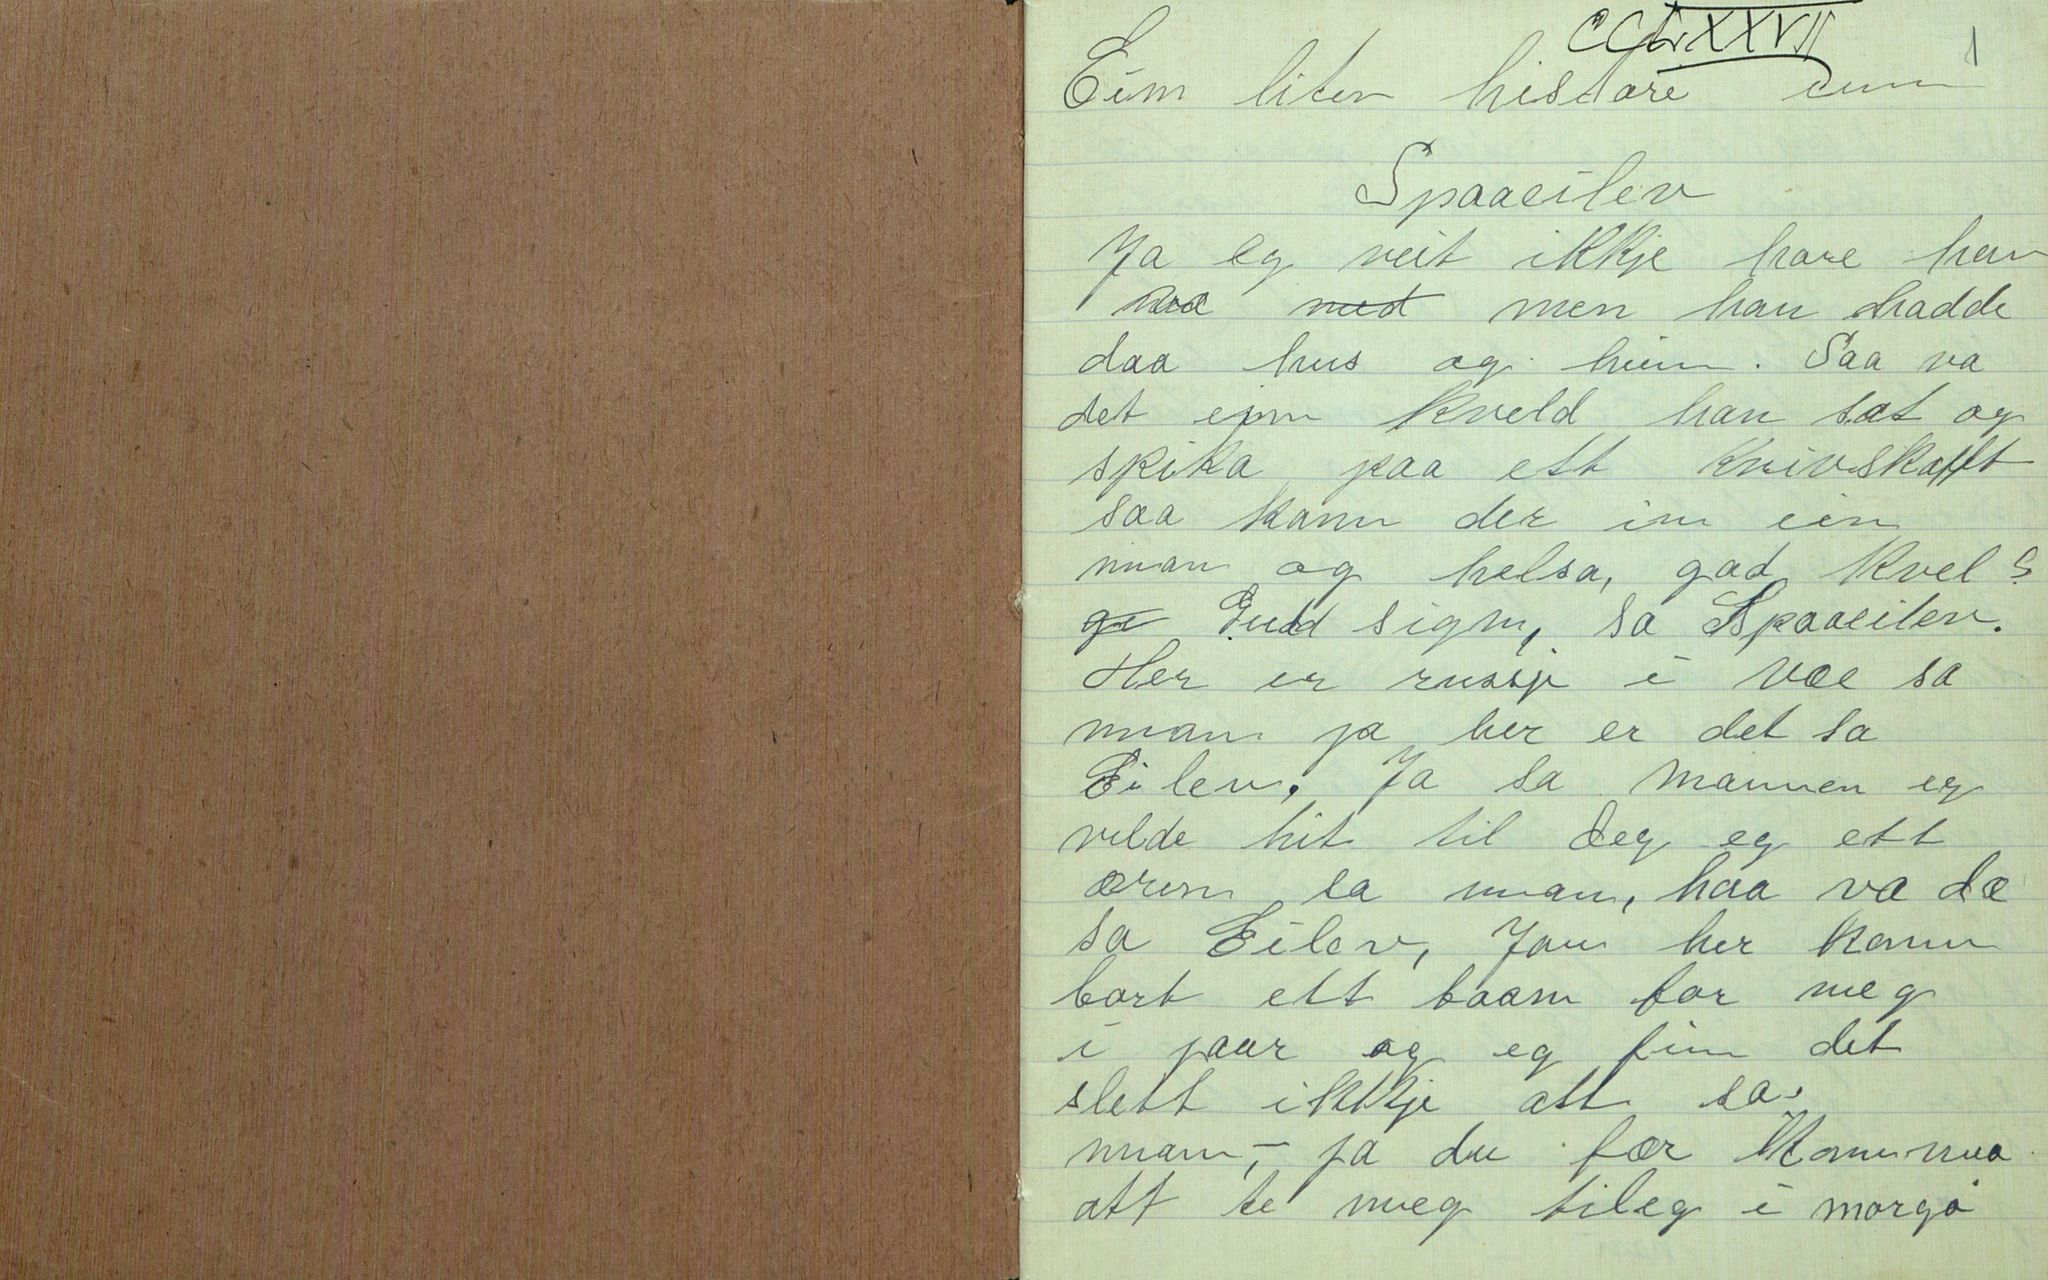 CCLXXVII
1
Ein liten histare um
Spaaeilev
Ja eg veit ikkje hare han
va med men han hadde
daa hus og heim. Saa va
det einn kveld han sat og
spika paa ett knivskafft
saa kamm der inn ein
mann og helsa, god kvel s
ge Gudd sign, sa Spaaeilev.
Her er russji i væe sa
mann ja her er det sa
Eilev. Ja sa mannen eg
vilde hit til deg eg ett
ærem sa mann, haa va dæ
sa Eilev, Jau her kamm
bort ett baan for meg
i jaar og eg finn det
slett ikkje att sa.
mann, – ja du fær komma
att te meg tileg i morgå